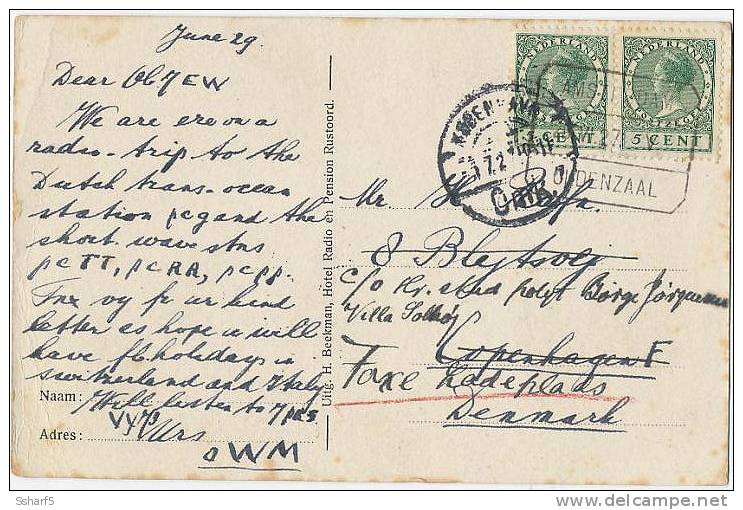 June 29.
Dear Ob 7EW
We are ere on a
radio-trip to the
Dutch trans-ocean
station pcg and the
short wave stns
pcTT, pcRR, pcpp.
Tnx vy fr ur kind
letter es hope u will
have fb holidays in
Switzerland and Italy
Naam: Will listen to
Adres: Vy 73
Urs
oWM
Uitg. H. Beekman, Hotel Radio en Pension Rustoord.
NEDERLAND
NEDERLAND
5 CENT
5 CENT
KØBENHAVN
OMK
OLDENZAAL
Mr
8 Blytsvej
c/o Børge Jørgensen
Villa
Copenhagen F
Faxe Ladeplads
Denmark
Ssharf5
delcampe.net